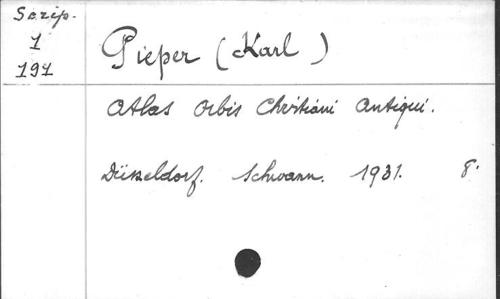 Scrip.
1
191
Pieper (Karl )
Atlas Orbis Christiani Antiqui.
Düsseldorf. Schwann. 1931. 8.